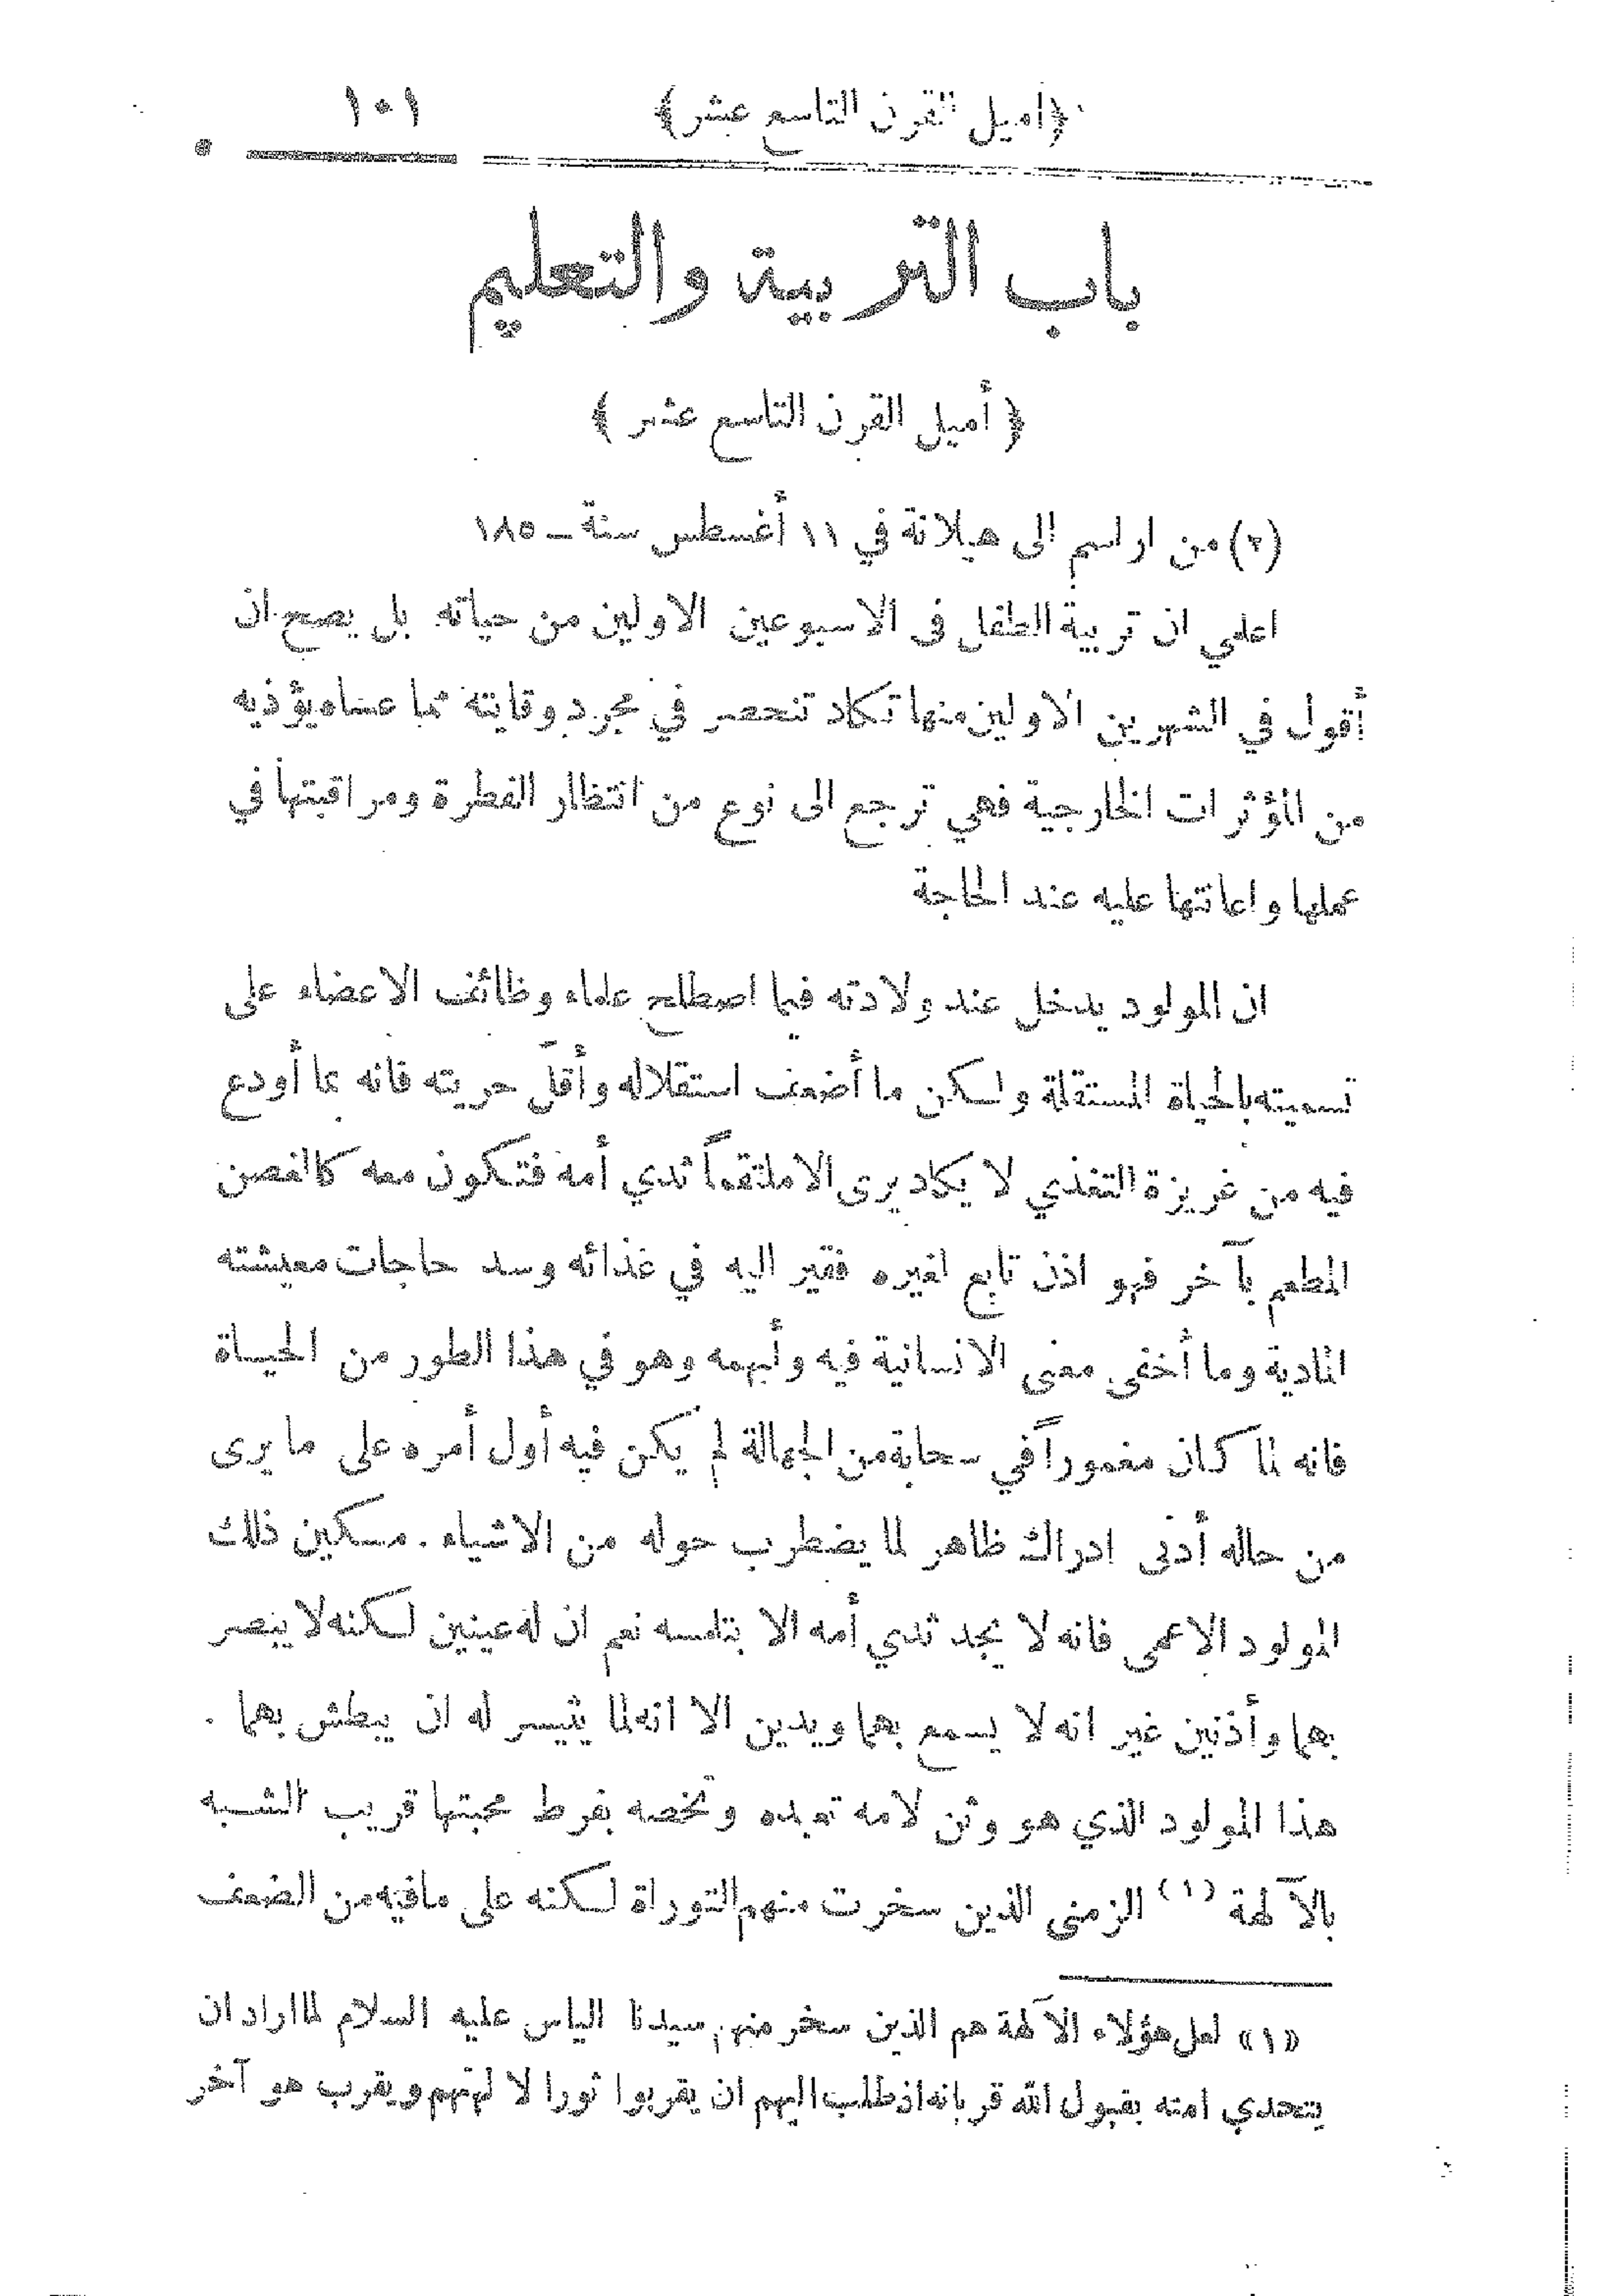 ﴿اميل القرن التاسع عشر﴾ ١٠١
باب التربية والتعليم
﴿ أميل القرن التاسع عشر ﴾
من اراسم الى هيلانة في ١١ أغسطس سنة ــ ١٨٥
اعلمي ان تربية الطفل فى الاسبوعين الاولين من حياته بل يصح ان
أقول في الشهرين الاولين منها تكاد تنحصر في مجرد وقايته مما عساه يؤذيه
من المؤثرات الخارجية فهي ترجع الى نوع من انتظار الفطرة ومراقبتها في
عملها واعانتها عليه عند الحاجة
ان المولود يدخل عند ولادته فيما اصطلح علماء وظائف الاعضاء على
تسميته بالحياة المستقلة ولكن ما أضعف استقلاله وأقلّ حريته فانه بما أودع
فيه من غريزة التغذي لا يكاد يرى الا ملتقماً ثدي أمه فتكون معه كالغصن
المطعم بآخر فهو اذن تابع لغيره فقير اليه في غذائه وسد حاجات معيشته
المادية وما أخفى معنى الانسانية فيه وأبهمه وهو في هذا الطور من الحياة
فانه لما كان مغموراً في سحابة من الجهالة لم يكن فيه أول أمره على ما يرى
من حاله أدنى ادراك ظاهر لما يضطرب حوله من الاشياء . مسكين ذلك
المولود الاعمى فانه لا يجد ثدي أمه الا بتلمسه نعم ان له عينين لكنه لا يبصر
بهما وأذنين غير انه لا يسمع بهما ويدين الا انه لما يتيسر له ان يبطش بهما .
هذا المولود الذي هو وثن لامه تعبده وتخصه بفرط محبتها قريب الشبه
بالآلهة (١) الزمنى الذين سخرت منهم التوراة لكنه على ما فيه من الضعف
«١» لعل هؤلاء الآلهة هم الذين سخر منهم سيدنا الياس عليه السلام لما اراد ان
يتحدي امته بقبول الله قربانه اذ طلب اليهم ان يقربوا ثورا لا لهتهم ويقرب هو آخر